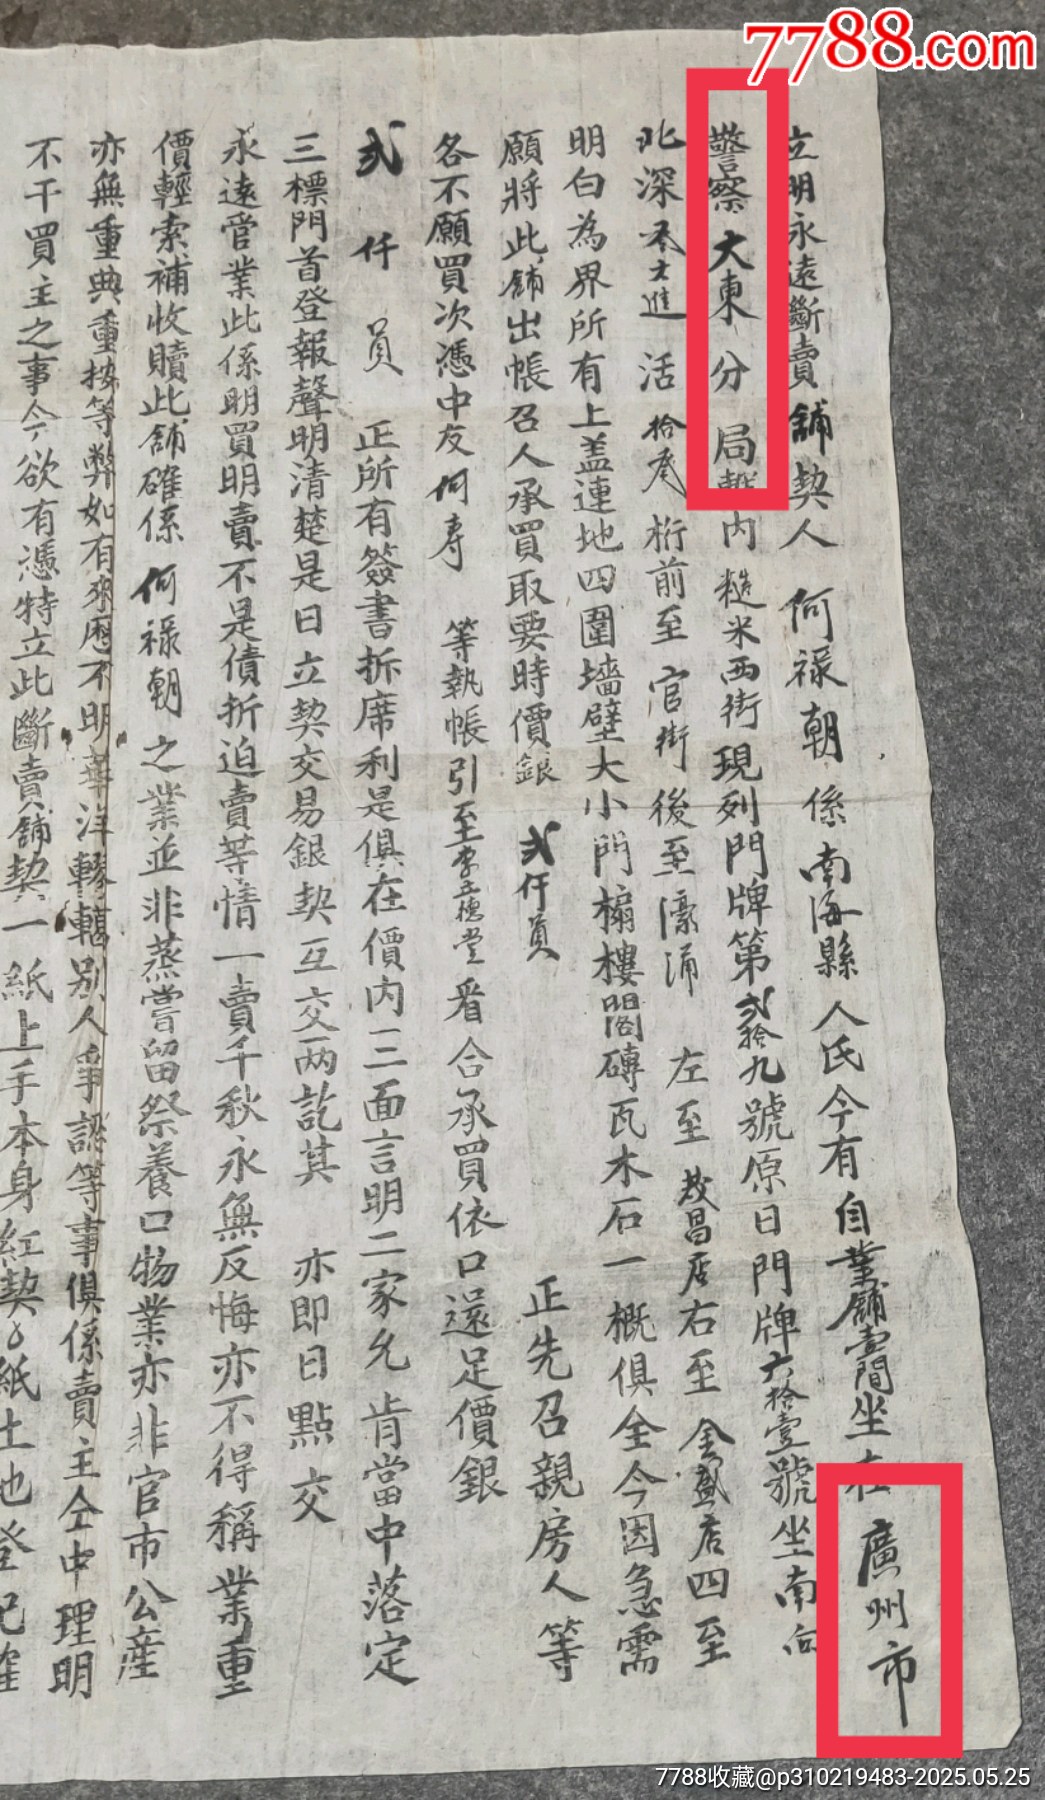 7788.com
立明永遠斷賣舖契人 何禄朝係南海縣人氏今有自業舖壹間坐在廣州市
警察大東分局 內糙米西街現列門牌第弍拾九號原日門牌六拾壹號坐南向
北深 大進 活拾 桁前至官街後至濠涌 左至茂昌店右至金盛店四至
明白為界所有上盖連地四圍墻壁大小門櫊樓閣磚瓦木石一概俱全今因急需
願將此舖出帳召人承買取要時價銀 弍仟員 正先召親房人等
各不願買次憑中友何壽 等執帳引至李立德堂看合承買依口還足價銀
弍仟員 正所有簽書拆席利是俱在價內一二面言明二家允肯當中落定
三標門首登報聲明清楚是日立契交易銀契互交两訖其 亦即日點交
永遠管業此係明買明賣不是債折迫賣等情一賣千秋永無反悔亦不得稱業重
價輕索補收贖此舖確係何禄朝之業並非蒸嘗留祭養口物業亦非官市公産
亦無重典重按等弊如有來歷不明華洋轇轕别人爭認等事俱係賣主仝中理明
不干買主之事今欲有憑特立此斷賣舖契一紙上手本身紅契 紙土地登記
7788收藏@p310219483-2025.05.25